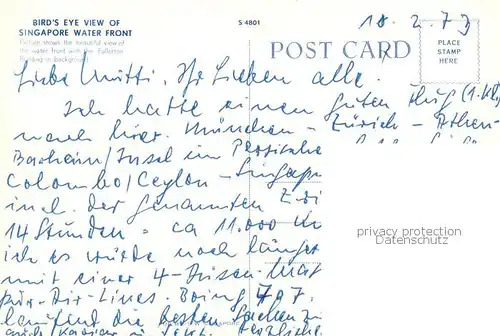 BIRD'S EYE VIEW OF
SINGAPORE WATER FRONT
Picture shows the beautiful view of
the water front with the Fullerton
Building in background
S 4801
18. 2. 73
POST CARD
PLACE
STAMP
HERE
Liebe Mutti, Ihr Lieben alle.
Ich hatte einen guten Flug (1. Kl.)
nach hier. München - Zürich - Athen -
Bahrein/Insel im Persische
Colombo/Ceylon - Singap
incl. der genannten
14 Stunden = ca 11.000 Km
ich es würde noch länger
mit einer 4-Düsen-
Air-Lines. Boing 707.
laufend die besten Sachen
auch Kaviar
privacy protection
Datenschutz